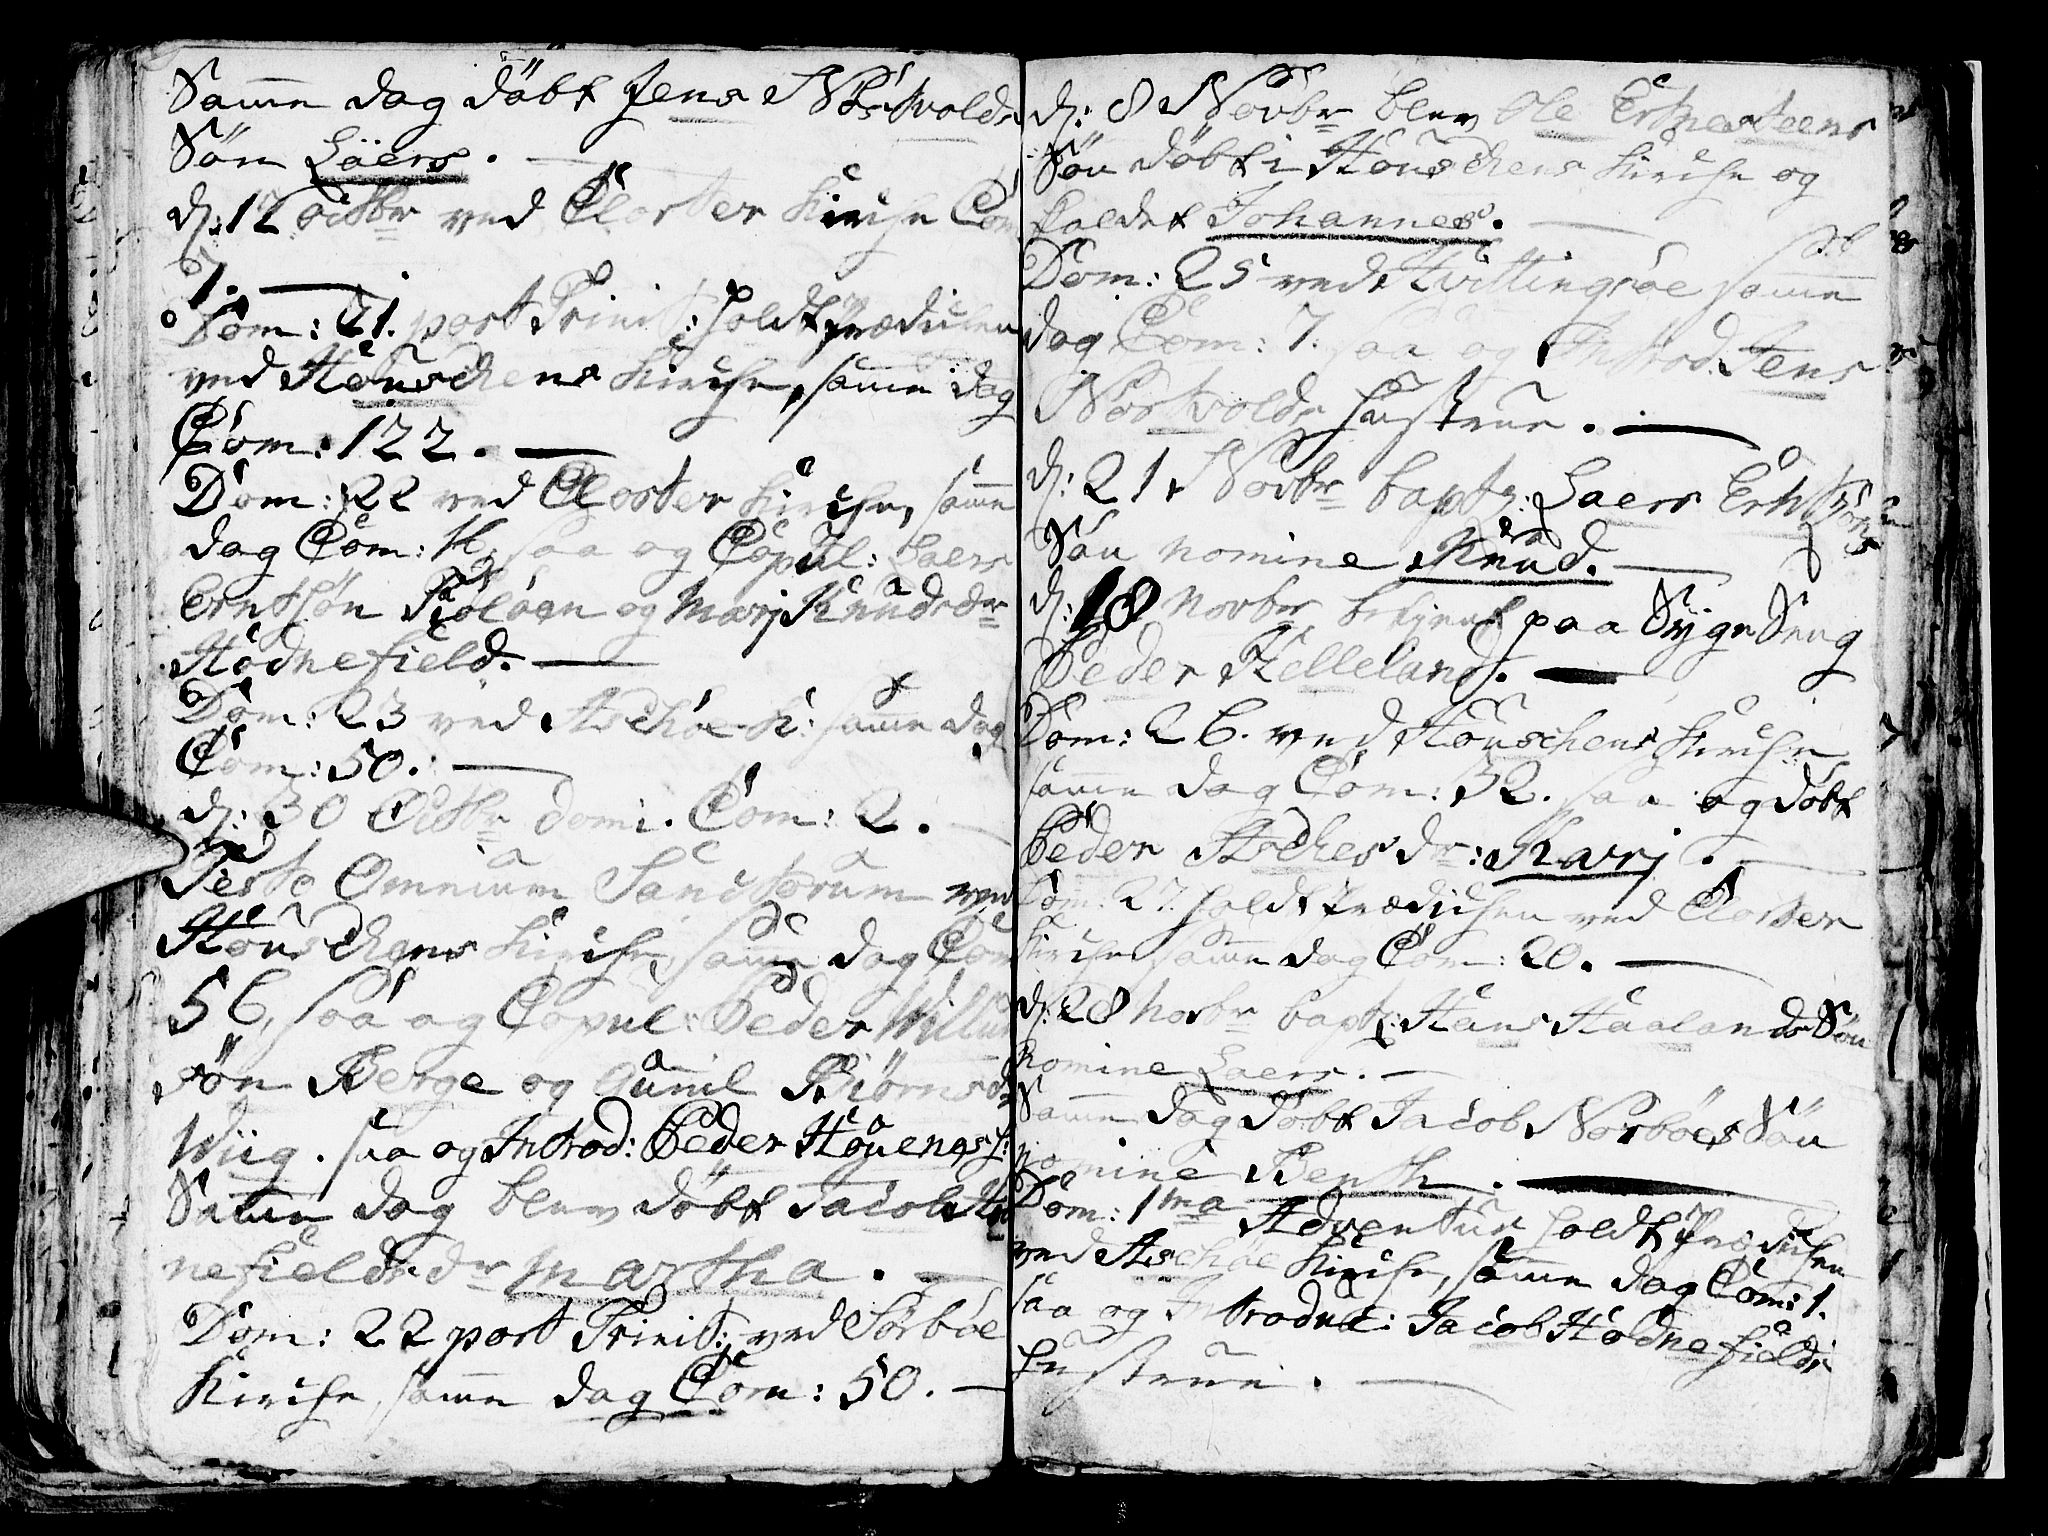 Samme dag døbt Jens Norkvolds
Søn Laers.
d: 12 octbr ved Closter Kirche Com
7.
Dom: 21. post Trinit: holdt Prædichen
ved Houschens Kirche, samme dag
Com: 122.
Dom: 22 ved Closter Kirche, samme
dag Com: 16, saa og Copul: Laers
Erntsøn og Marj Knudsdr
Hodnefield.
Dom: 23 ved Aschøe K: samme dag
Com: 50.
d: 30 Octbr domi. Com: 2.
Festo Omnium Sanctorum ved
Houschens Kirche, samme dag Com
56, saa og Copul: Peder Willum
søn Berge og Gunnil Biørnsdr
Wiig. saa og Introd: Peder Houenes h:
Samme dag blev døbt Jacob Hod
nefields dr Martha.
Dom: 22 post Trinit: ved Sørbøe
Kirche, samme dag Com: 50.
d: 8 Novbr blev Ole Erchesteens
Søn døbt i Houschens Kirche og
kaldet Johannes.
Dom: 25 ved Hvittingsøe samme
dag Com: 7. saa og Introd. Jens
Norkvolds hustrue.
d: 21 Novbr bapt: Laers
Søn nomine Knud.
d: 18 Novbr betient paa Syge Seng
Peder Helleland.
Dom: 26. ved Houschens Kirche
samme dag Com: 32. saa og døbt
Peder Asches dr: Karj.
Dom: 27. holdt Prædichen ved Closter
Kirche samme dag Com: 20.
d: 28 Novbr bapt: Hans Haalands Søn
nomine Laers.
Samme dag døbt Jacob Norbøes Søn
nomine Benth.
Dom: 1ma Adventus holdt Prædichen
ved Aschøe Kirche, samme dag Com: 1.
saa og Introduc: Jacob Hodnefields
hustrue.